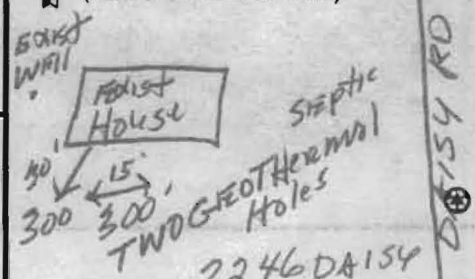 EXIST
WELL
EXIST
HOUSE
SEPTIC
30'
15'
300 300'
TWO GEOTHERMAL
Holes
2246 DAISY
DAISY RD